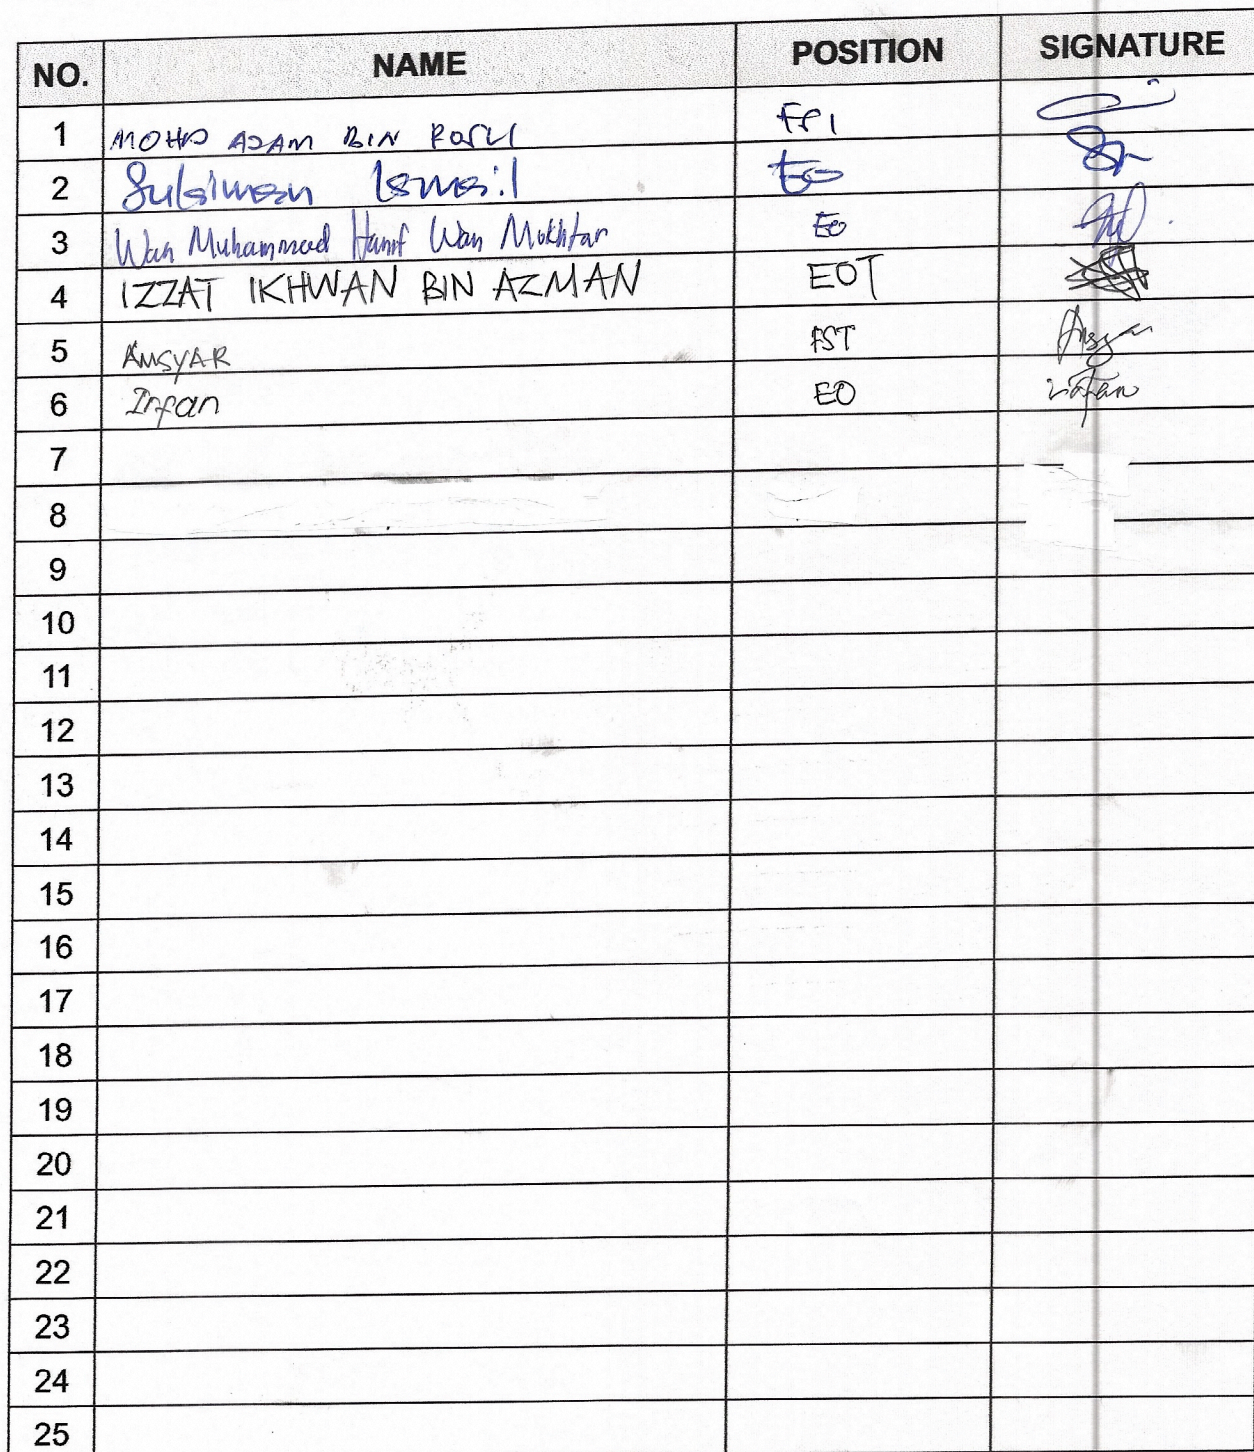 NO. NAME POSITION SIGNATURE
1 MOHD AZAM BIN ROSLI FPI
2 Sulaiman Ismail EO
3 Wan Muhammad Hanif Wan Mokhtar EO
4 IZZAT IKHWAN BIN AZMAN EOT
5 AMSYAR FST
6 Irfan EO irfan
7
8
9
10
11
12
13
14
15
16
17
18
19
20
21
22
23
24
25